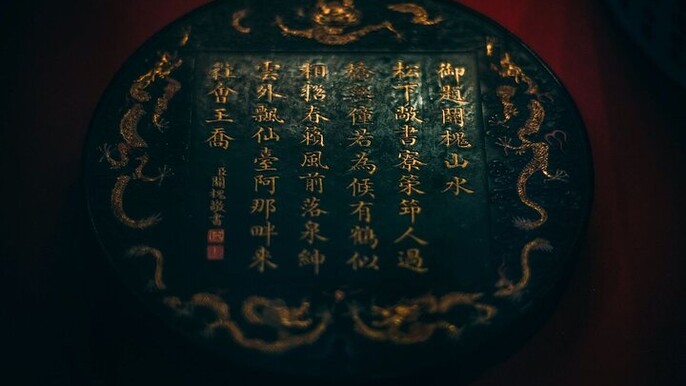 御題關槐山水
松下敞書寮策笻人過
橋經僮若為候有鶴似
相招春籟風前落泉紳
雲外飄仙臺阿那畔來
往會王喬
臣關槐敬書